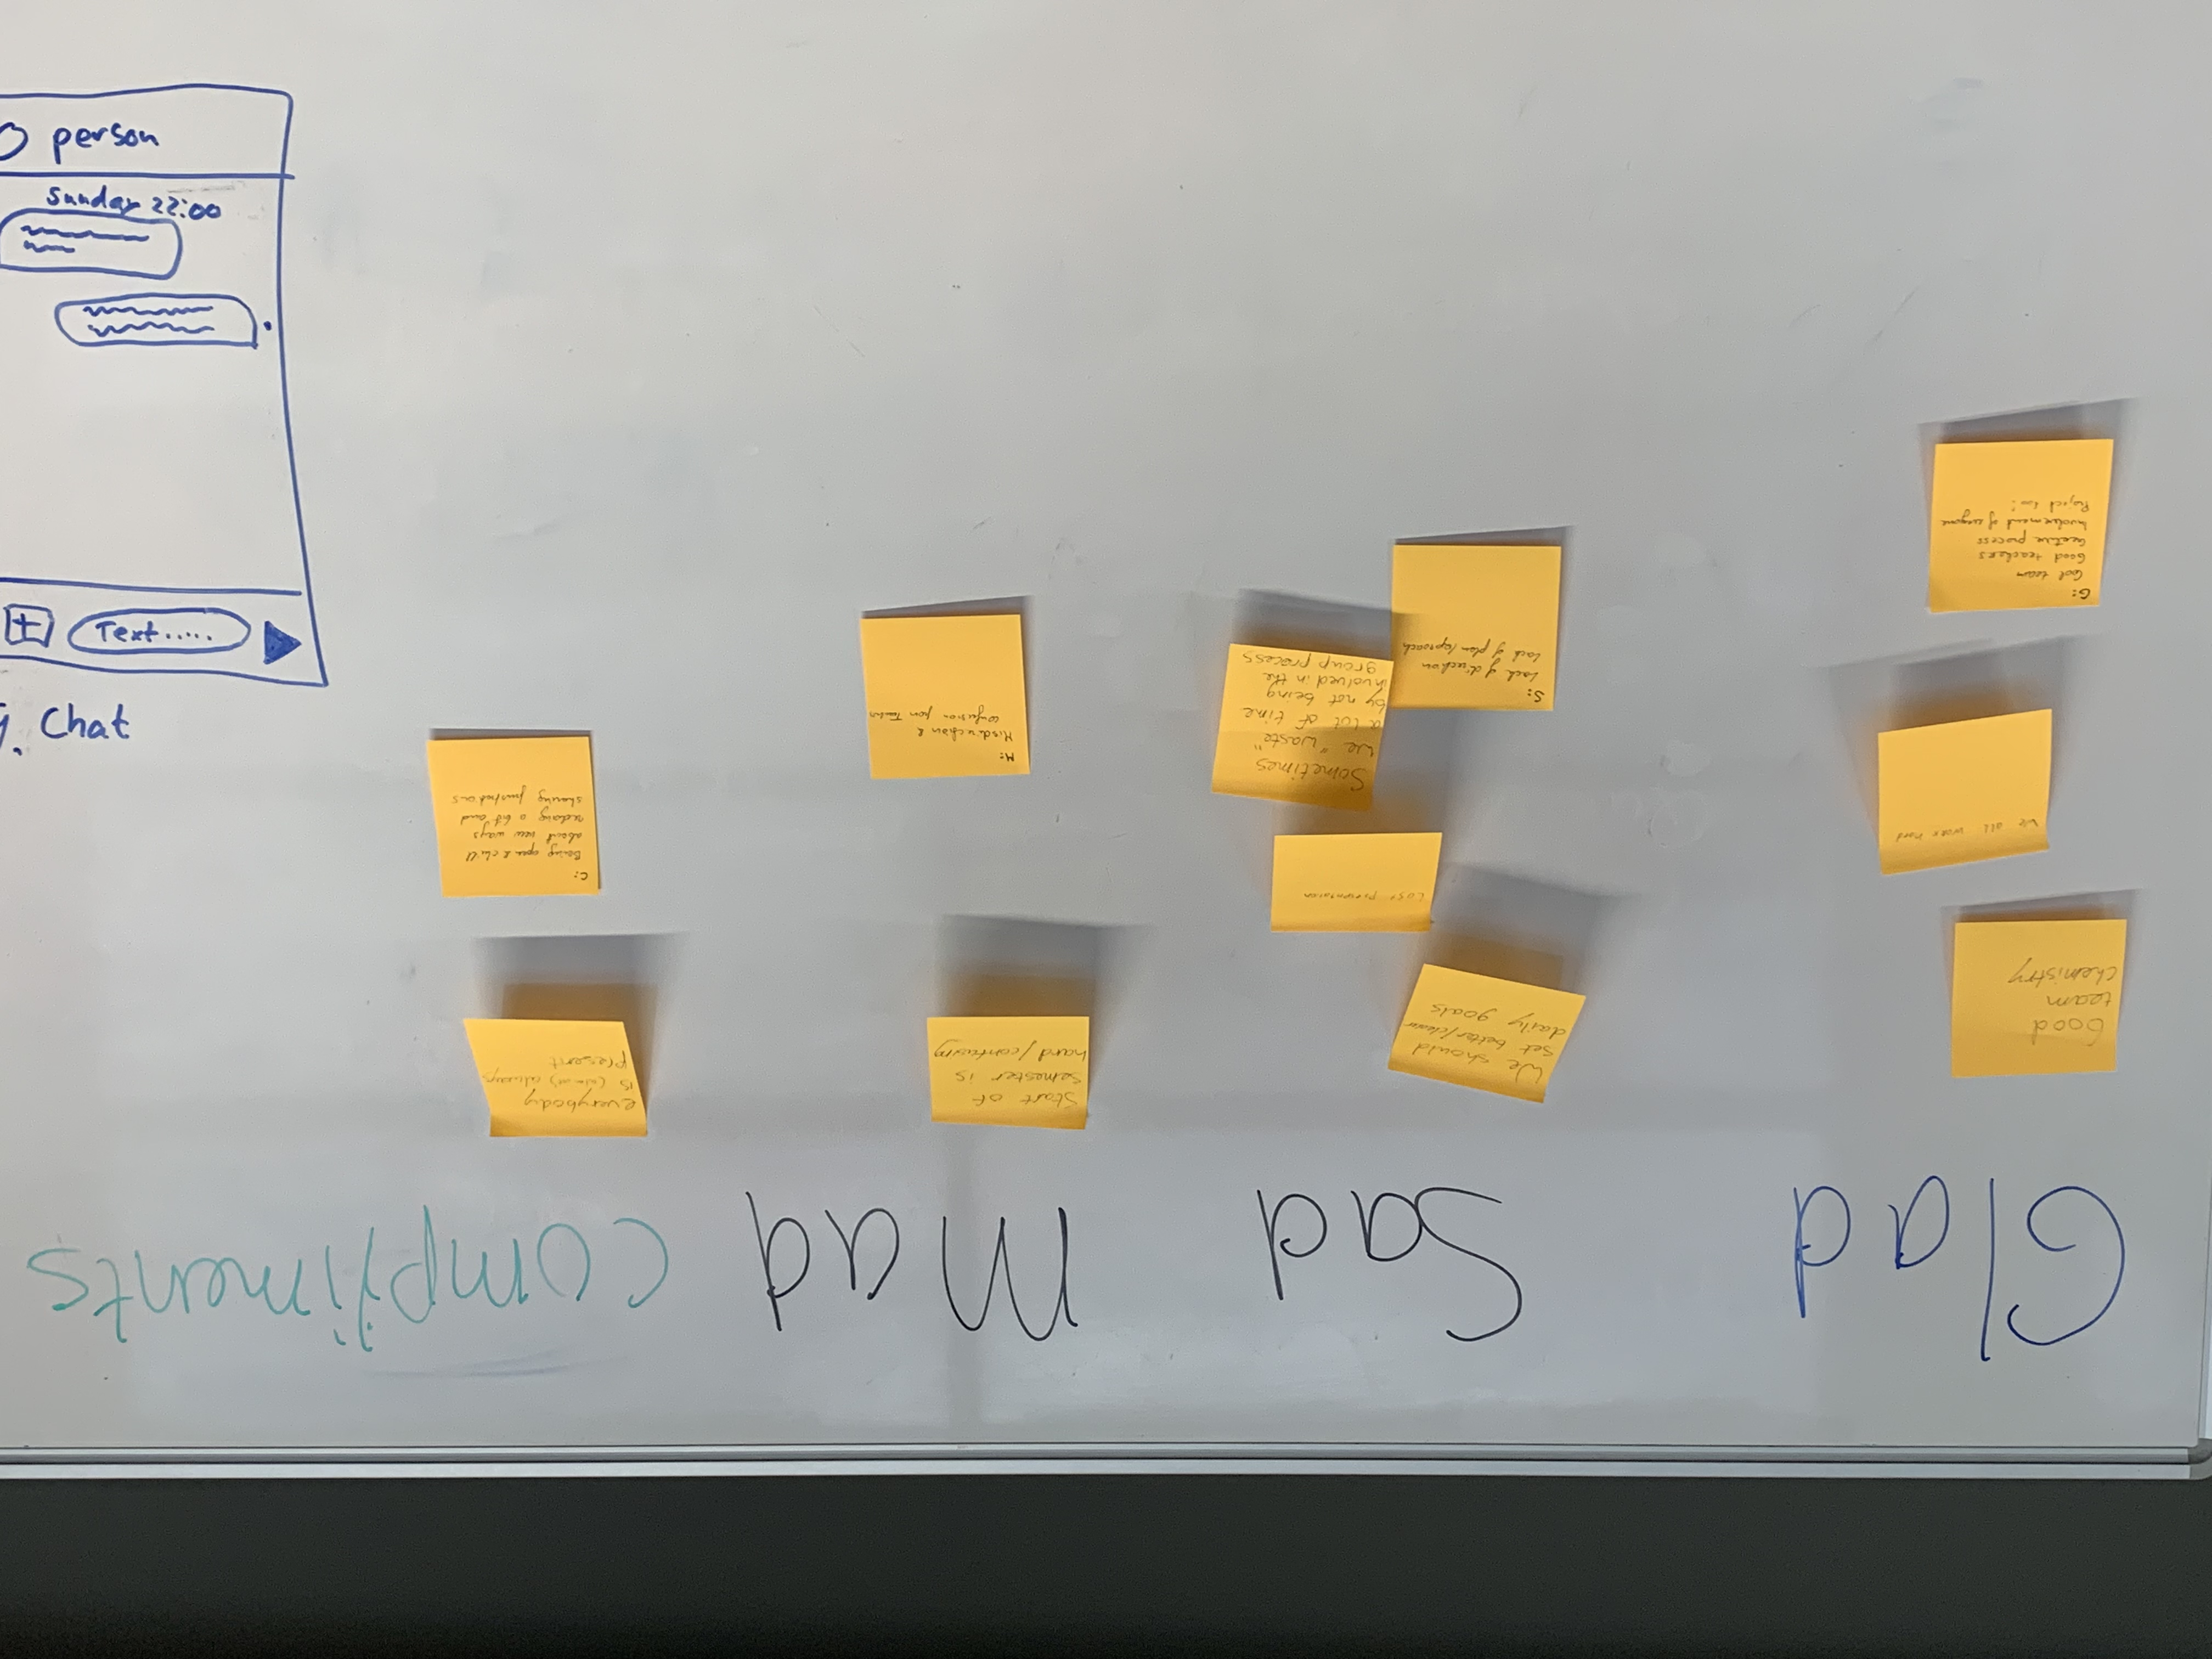 Glad
Sad
Mad
compliments
Good
team
chemistry
We all work hard
G:
Cool team
Good teachers
Creative process
Involvement of everyone
Project
We should
set better/clearer
daily goals
Last presentation
Sometimes
we "waste"
a lot of time
by not being
involved in the
group process
S:
Lack of direction
Lack of plan/aproach
Start of
semester is
hard/confusing
M:
Misdirection &
confusion from
everybody
is always
present
C:
Being open & chill
about new ways
a bit and
sharing frustrations
Chat
Text.....
Sunday 22:00
person